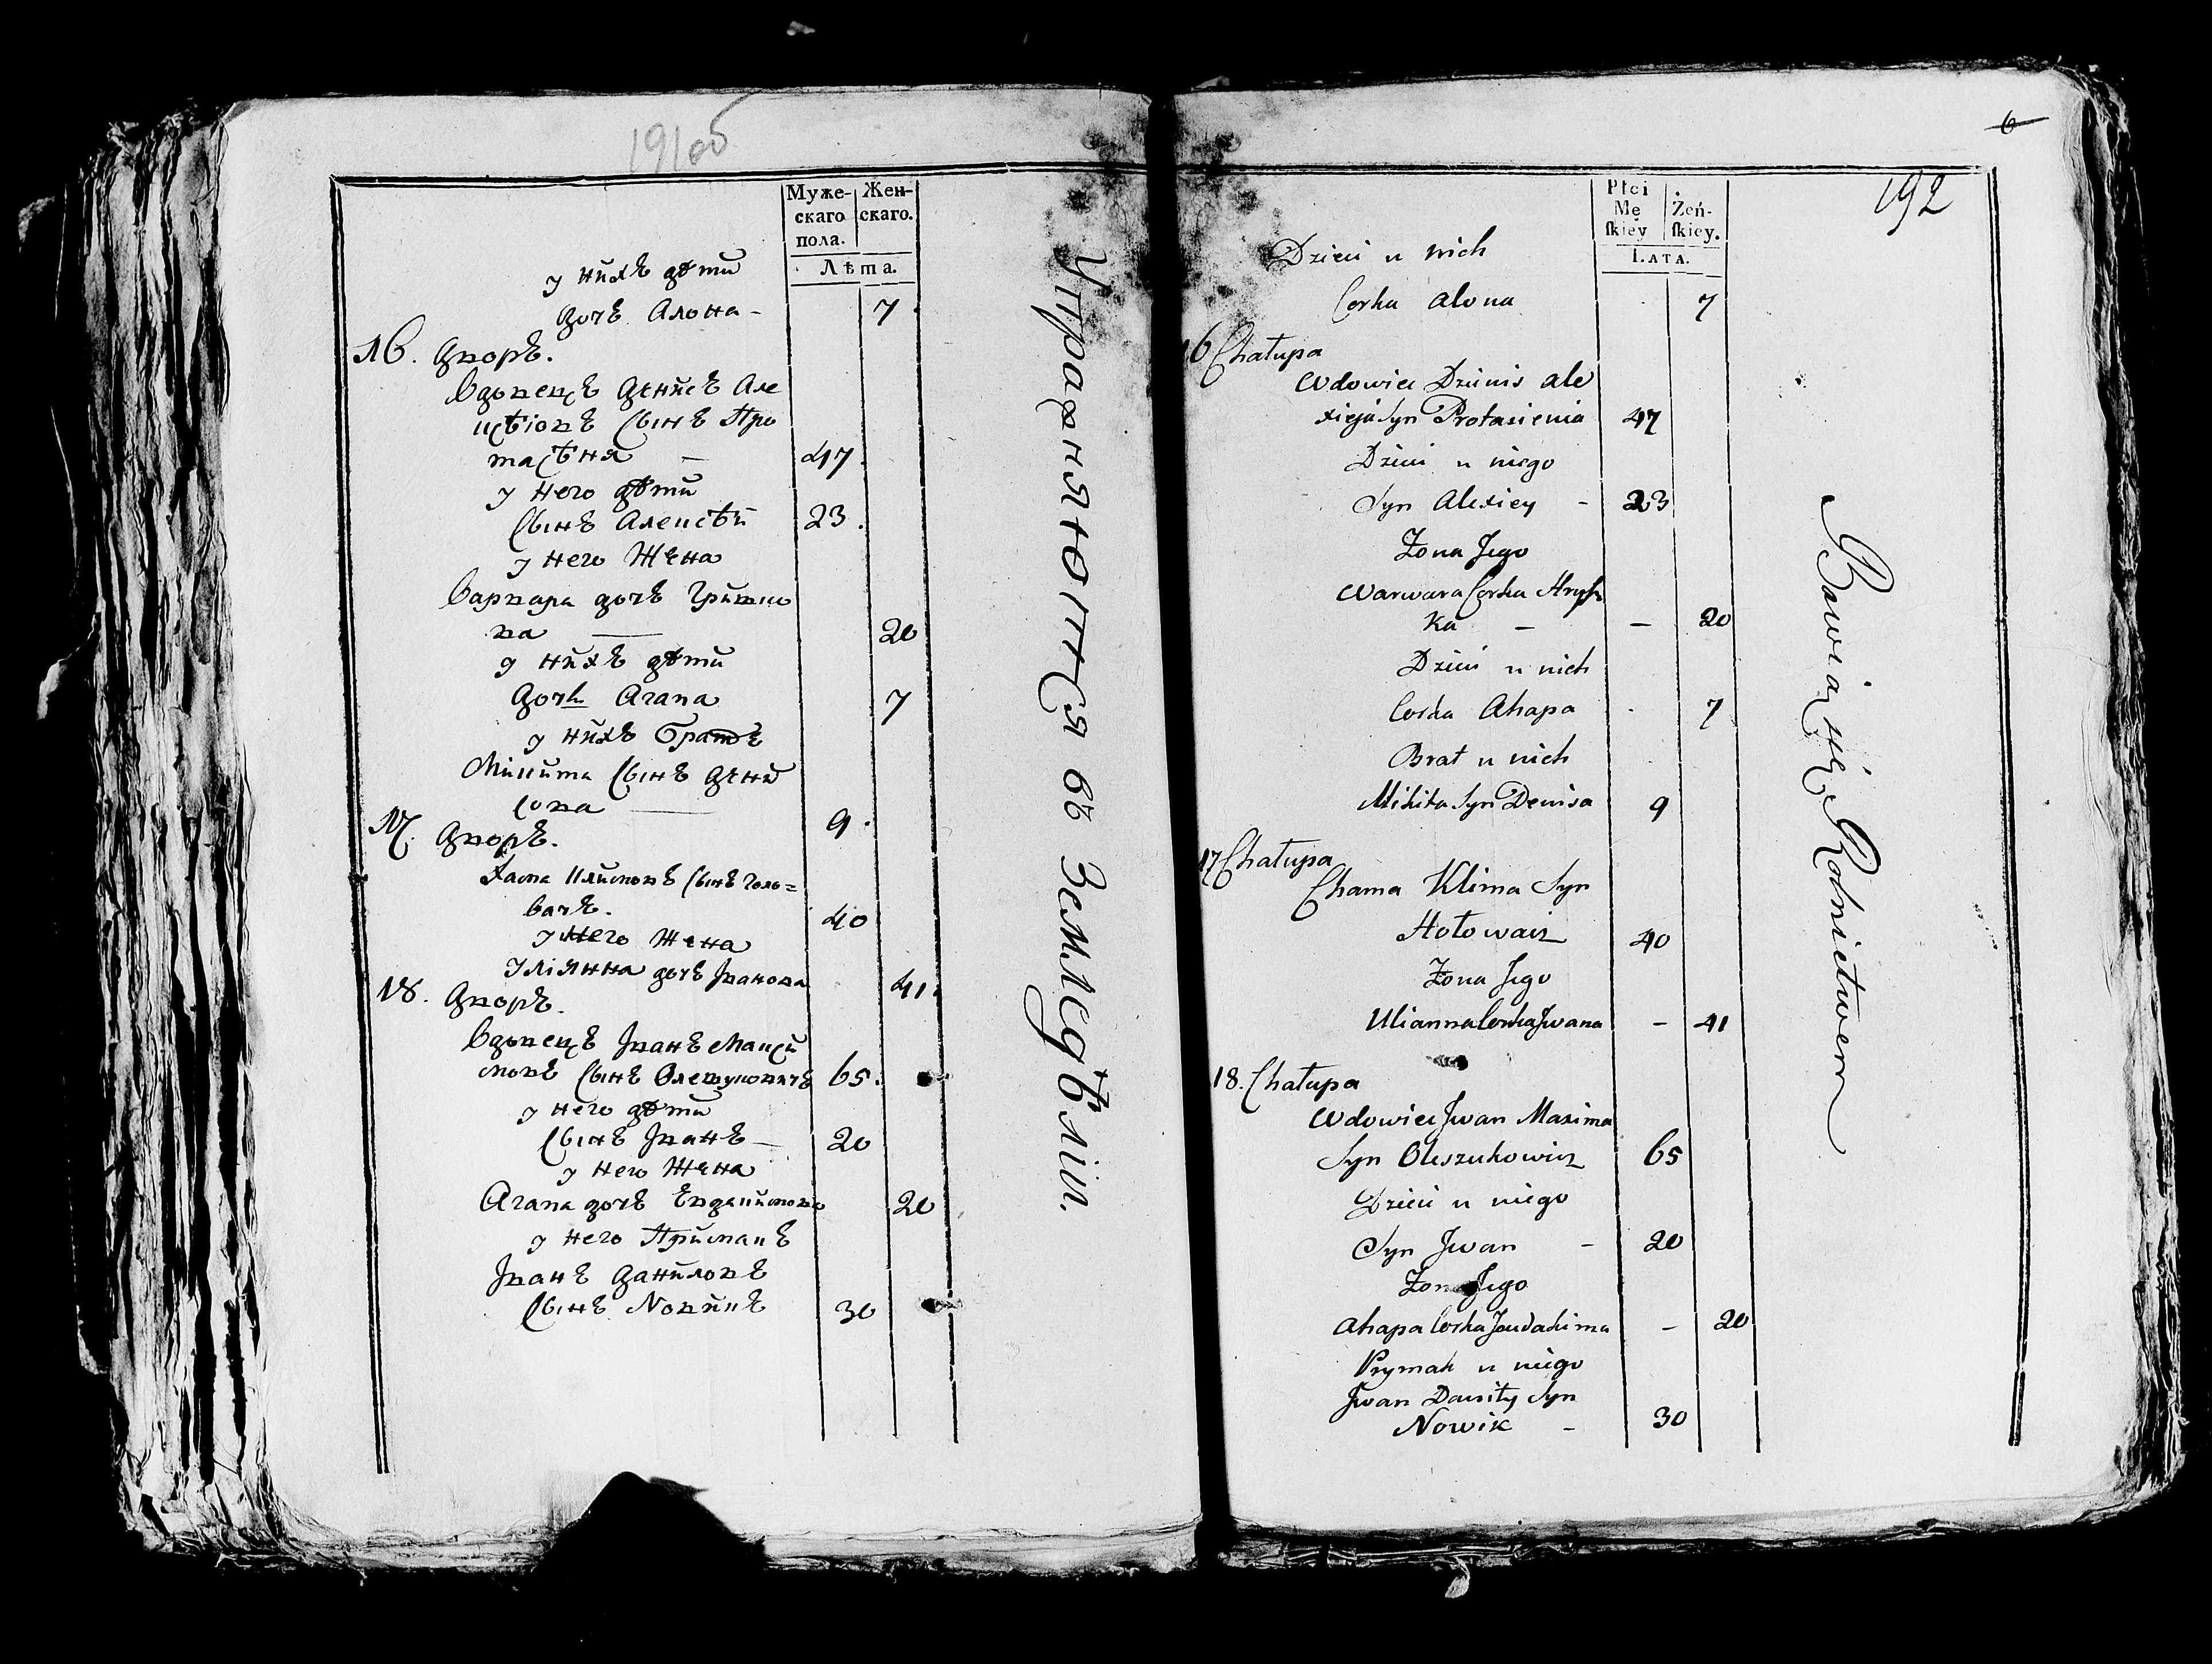 191об
Муже- Жен-
скаго скаго.
пола.
Лѣта.
у нихъ дѣти
дочъ Алона - 7
16. дворъ.
Вдовецъ денисъ Але
ксѣіовъ Сынъ Про
тасѣня - 47
у него дѣти
Сынъ Алексѣй 23.
у него Жена
Варвара дочъ Гришко
ва 20
у нихъ дѣти
дочь Агапа 7
у нихъ братъ
Микита Сынъ дени
сова 9.
17. дворъ.
Хама Климовъ Сынъ Голо=
вачъ. 40
у него Жена
Улiянна дочъ Iванова 41.
18. дворъ.
Вдовецъ Iванъ Макси
мовъ Сынъ Олешуковичъ 65.
у него дѣти
Сынъ Iванъ - 20
у него Жена
Агапа дочъ Евдакимова 20
у него Примакъ
Iванъ даниловъ
Сынъ Новикъ 30
Упражняются въ Земледѣліи.
6
192
Płci
Mę Żeń-
ſkiey ſkiey.
LATA.
Dzieci u nich
Corka Alona 7
16 Chałupa
Wdowiec Dzienis Ale
xieja Syn Protasienia 47
Dzieci u niego
Syn Alexiey - 23
Zona Jego
Warwara Corka Hrysz
ka - - 20
Dzieci u nich
Corka Ahapa 7
Brat u nich
Mikita Syn Denisa 9
17 Chałupa
Chama Klima Syn
Hołowacz 40
Zona Jego
Ulianna Corka Jwana - 41
18. Chałupa
Wdowiec Jwan Maxima
Syn Oleszukowicz 65
Dzieci u niego
Syn Jwan - 20
Zona Jego
Ahapa Corka Jeudakima - 20
Prymak u niego
Jwan Daniły Syn
Nowik - 30
Bawią się Rolnictwem